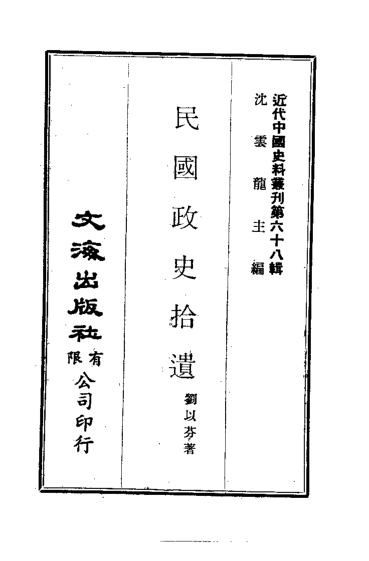 近代中國史料叢刊第六十八輯
沈雲龍主編
民國政史拾遺
劉以芬著
文海出版社
有限
公司印行